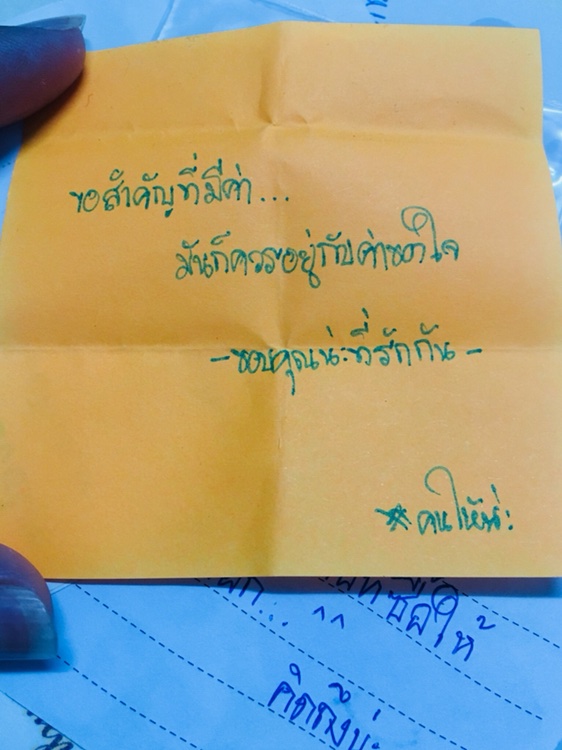 ของสำคัญที่มีค่า...
มันก็ควรอยู่กับค่าของใจ
-ขอบคุณน่ะที่รักกัน-
*คนให้น่ะ
ซื้อให้
^^
คิดถึงน่ะ